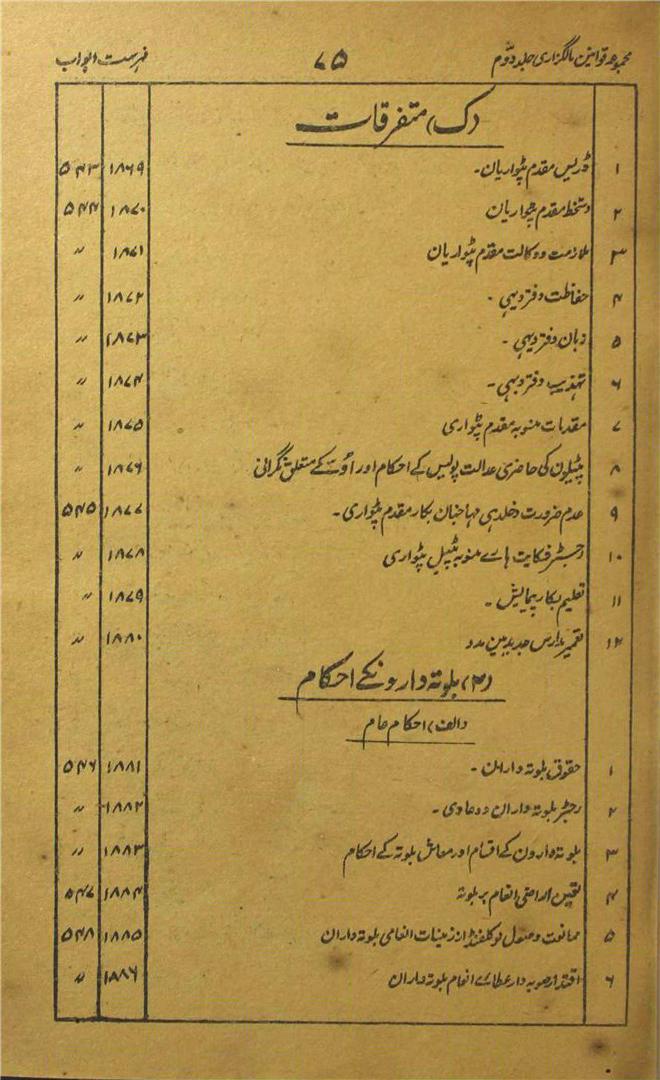 مجموعہ قوانین مالگزاری جلد دوم ۷۵ فہرست ابواب
(ک) متفرقات
۱ ڈریس مقدم پٹواریان۔ ۱۸۶۹ ۵۴۳
۲ دستخط مقدم پٹواریان ۱۸۷۰ ۵۴۴
۳ ملازمت و وکالت مقدم پٹواریان ۱۸۷۱ 〃
۴ حفاظت دفتر دیہی۔ ۱۸۷۲ 〃
۵ زبان دفتر دیہی۔ ۱۸۷۳ 〃
۶ تہذیب دفتر دیہی۔ ۱۸۷۴ 〃
۷ مقدمات منوبہ مقدم پٹواری ۱۸۷۵ 〃
۸ پٹیلون کی حاضری عدالت پولیس کے احکام اور اُوت کے متعلق نگرانی ۱۸۷۶ 〃
۹ عدم ضرورت دخلدہی مہاجنان بکار مقدم پٹواری۔ ۱۸۷۷ ۵۴۵
۱۰ رجسٹر شکایت ہاے منوبہ پٹیل پٹواری ۱۸۷۸ 〃
۱۱ تعلیم بکار پیمایش۔ ۱۸۷۹ 〃
۱۲ تعمیر مدارس جدید مین مدد ۱۸۸۰ 〃
(۳) بلوتہ دارونکے احکام
(الف) احکام عام
۱ حقوق بلوتہ داران۔ ۱۸۸۱ ۵۴۶
۲ رجسٹر بلوتہ داران و دعاوی۔ ۱۸۸۲ 〃
۳ بلوتہ دارون کے اقسام اور معاش بلوتہ کے احکام ۱۸۸۳ 〃
۴ تعین اراضی انعام بر بلوتہ ۱۸۸۴ ۵۴۷
۵ ممانعت وصول لوکلفنڈ از زمینات انعامی بلوتہ داران ۱۸۸۵ ۵۴۸
۶ اقتدار صوبہ دار عطاے انعام بلوتہ داران ۱۸۸۶ 〃